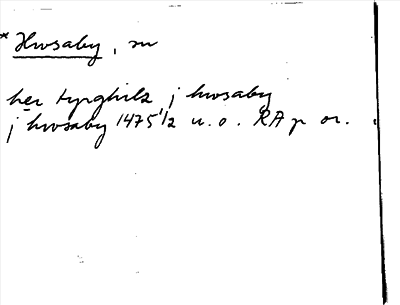 * Hwsaby, sn
her tyrghilz j hwsaby
j hwsaby 1475 1/2 u. o. RAp or.